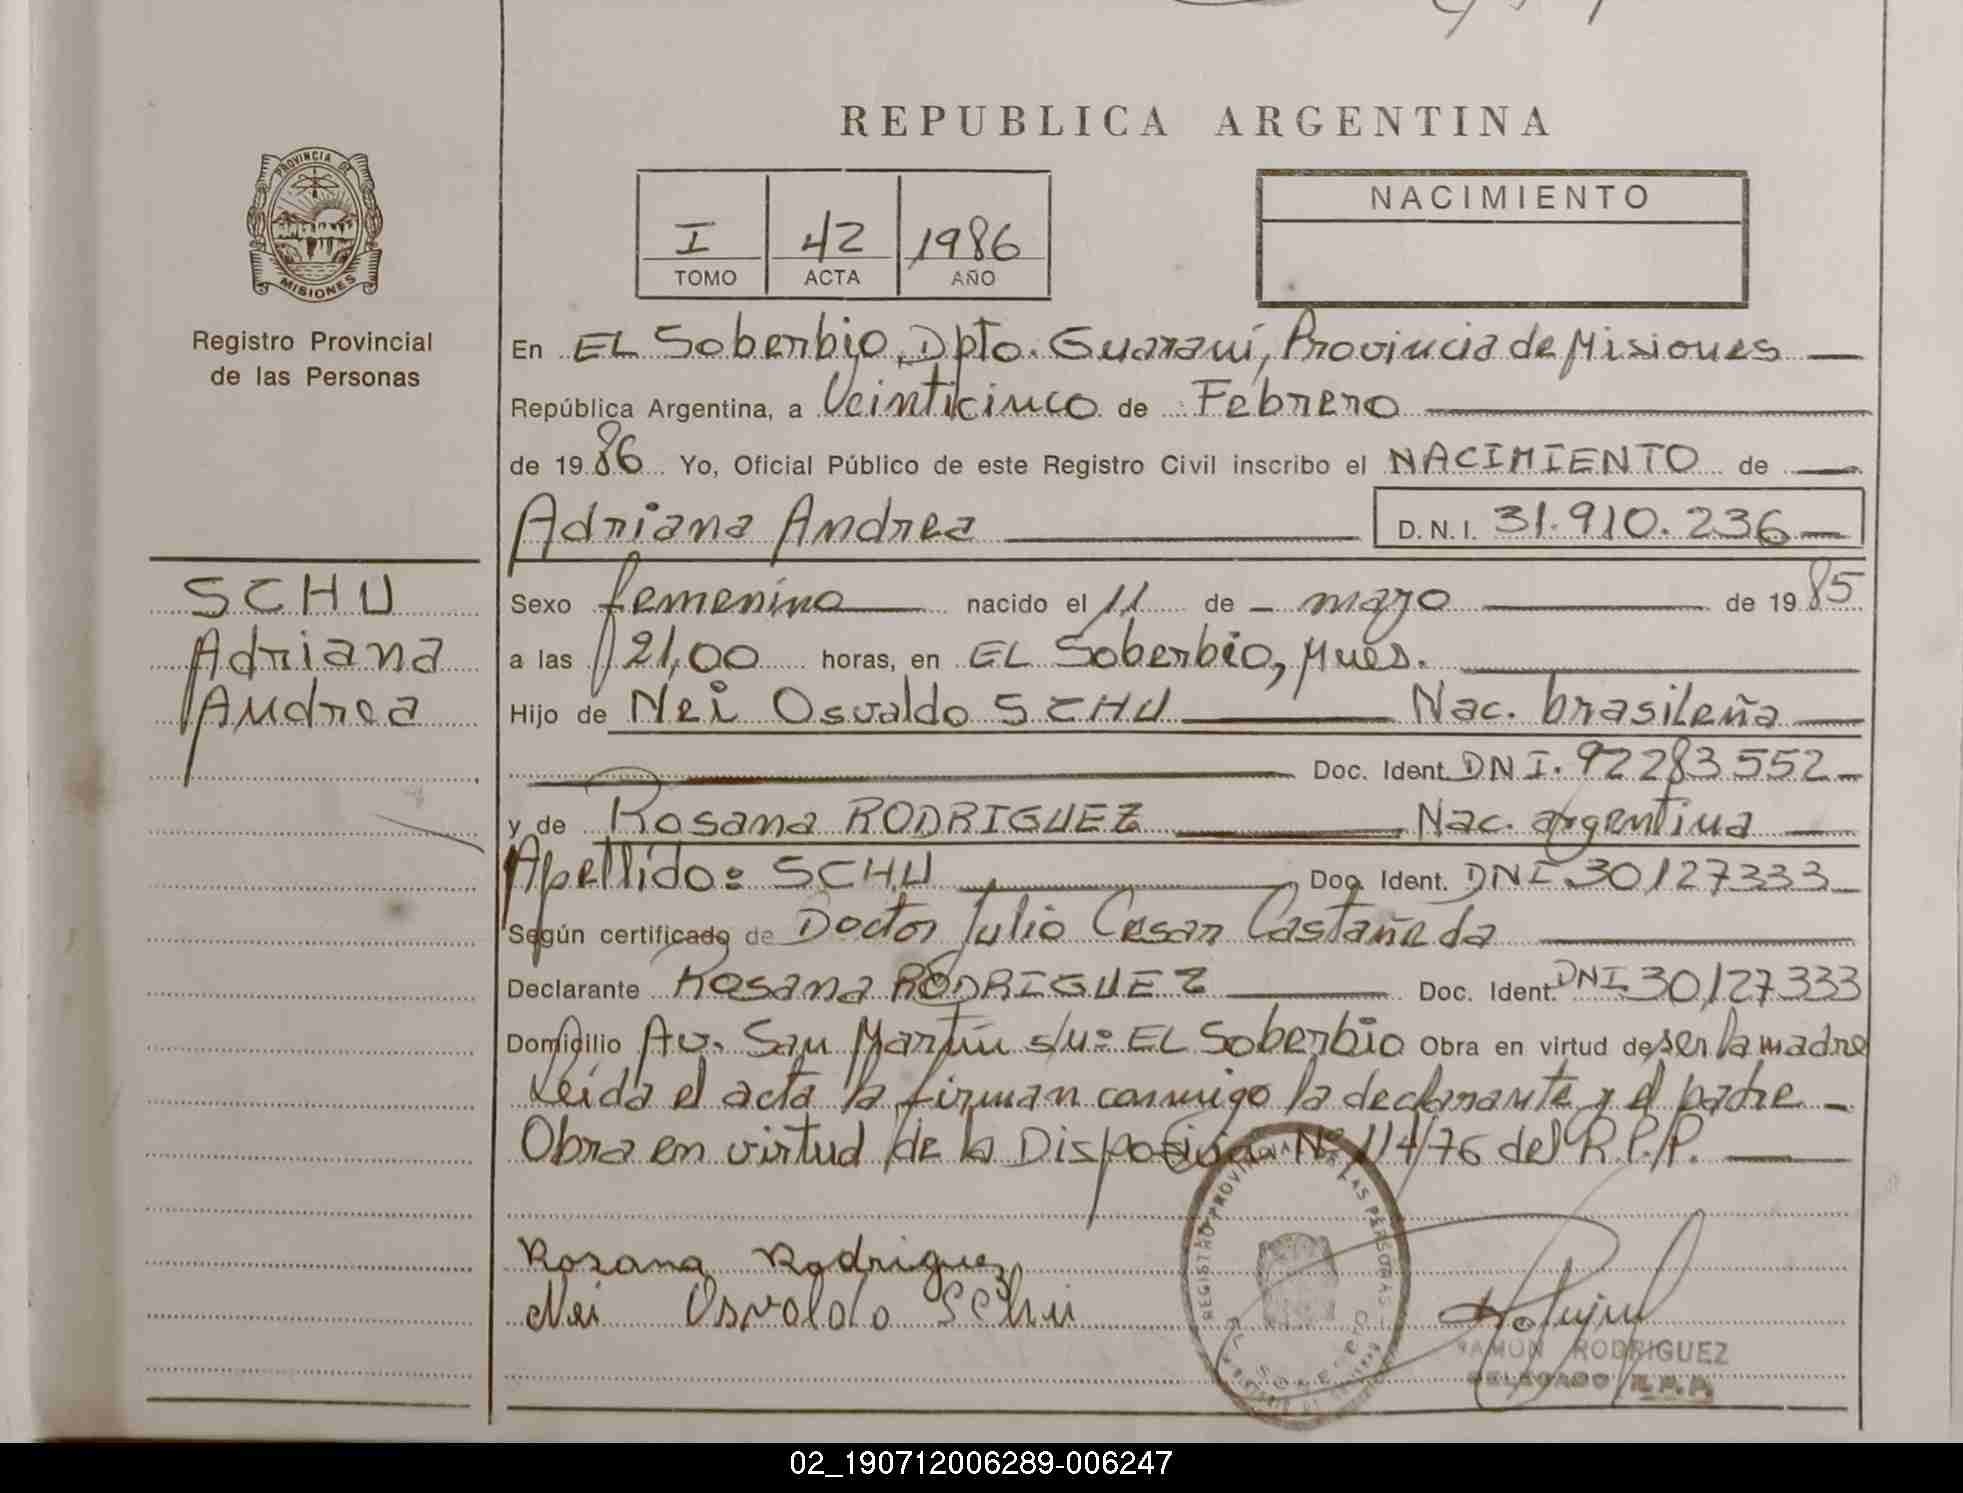 REPUBLICA ARGENTINA
PROVINCIA DE MISIONES
Registro Provincial
de las Personas
I 42 1986
TOMO ACTA AÑO
NACIMIENTO
En EL Soberbio, Dpto. Guaraní, Provincia de Misiones
República Argentina, a Veinticinco de Febrero
de 1986 Yo, Oficial Público de este Registro Civil inscribo el NACIMIENTO de
Adriana Andrea D.N.I. 31.910.236
SCHU
Adriana
Andrea
Sexo femenino nacido el 11 de mayo de 1985
a las 21,00 horas, en EL Soberbio, Mnes.
Hijo de Nei Osvaldo SCHU Nac. brasileña
Doc. Ident. DNI. 92283552
y de Rosana RODRIGUEZ Nac. argentina
Apellido: SCHU Doc. Ident. DNI 30127333
Según certificado de Doctor Julio Cesar Castañeda
Declarante Rosana RODRIGUEZ Doc. Ident. DNI 30127333
Domicilio Av. San Martín s/n: EL Soberbio Obra en virtud de ser la madre
Leída el acta la firman conmigo la declarante y el padre
Obra en virtud de la Disposición Nº 114/76 del R.P.P.
REGISTRO PROVINCIAL DE LAS PERSONAS
Rosana Rodriguez
Nei Osvaldo Schu
RAMON RODRIGUEZ
DELEGADO R.P.P.
02_190712006289-006247